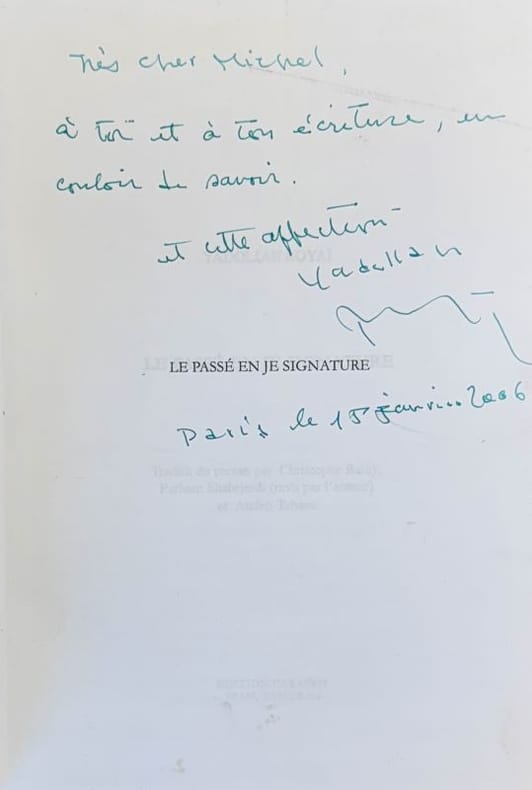 Très cher Michel,
à toi et à ton écriture, en
couloir de savoir.
et cette affection
Yadollah
LE PASSÉ EN JE SIGNATURE
Paris le 15 janvier 2006